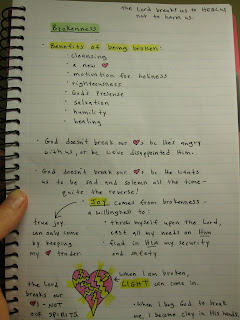 the Lord breaks us to HEAL us
not to harm us.
Brokenness
· Benefits of being broken:
· cleansing
· a new ♥
· motivation for holiness
· righteousness
· God's Presence
· salvation
· humility
· healing
· God doesn't break our ♥s bc He's angry
with us, or bc we've disappointed Him.
· God doesn't break our ♥s bc He wants
us to be sad and solemn all the time -
quite the reverse!
· Joy comes from brokenness -
a willingness to:
· throw myself upon the Lord,
cast all my needs on Him
find in Him my security
and safety
true joy
can only come
by keeping
my ♥ tender
the Lord
breaks our
♥s - NOT
our SPIRITS
when I am broken,
LIGHT can come in.
· When I beg God to break
me, I become clay in His hands.